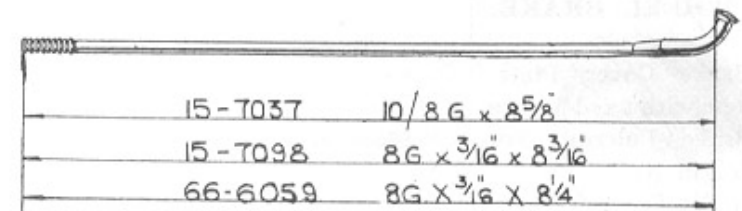 15-7037 10/8 G x 8 5/8"
15-7098 8G x 3/16" x 8 3/16"
66-6059 8G X 3/16" X 8 1/4"